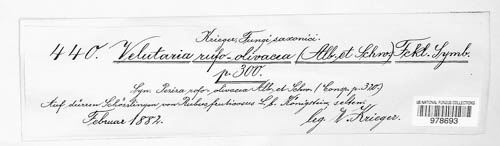 Krieger, Fungi saxonici.
440. Velutaria rufo-olivacea (Alb. et Schw.) Fckl. Symb.
p. 300.
Syn. Peziza rufo-olivacea Alb. et Schw. (Consp. p. 320)
Auf dürren Schösslingen von Rubus fruticosus L. b. Königstein, selten.
Februar 1882. leg. W. Krieger.
US NATIONAL FUNGUS COLLECTIONS
978693